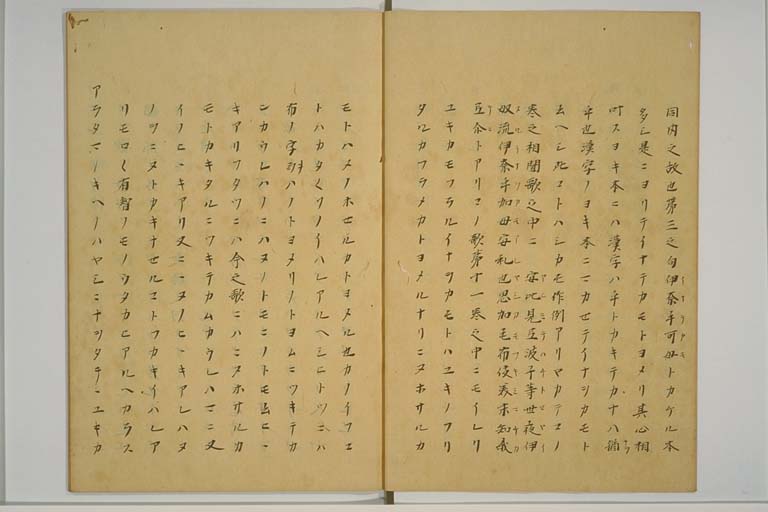 同内之故也第三之句伊奈乎可母トカケル本
多シ是ニヨリテイナヲカモトヨメリ其心相
叶スヨキ本ニハ漢字ハ乎トカキテカナハ
乎也漢字ノヨキ本ニマカセテイナシカモト
云ヘシ此コトハシカモ作例アリマカテコノ
巻之相聞歌之中ニ安比見弖波千等世夜伊
奴流伊奈乎加母安礼也思加毛布伎美末知我
弖尓トアリコノ歌第十一巻之中ニモイレリ
ユキカモフラルイナヲカモトハユキノフリ
タルカフラメカトヨメルナリニヌホサルカ
モトハメノホセルカトヨメル也カノイフコ
トハカタ〱ソノイハレアルヘシヒトツニハ
布ノ字ヲハノトヨメリノトヨムニツキテカ
ンカウレハノニハヌノトモニノトモ云ヒヒ
キアリフタツニハ今之歌ニハニヌホサルカ
モトカキタルニツキテカムカウレハマニ又
イノヒヒキアリ又ニヌノヒヒキアレハヌ
ノヲニヌトカキナセルコトフカキイハレア
リモロ〱有智ノモノウタカヒアルヘカラス
アラタマノキヘノハヤシニナヲタテニユキカ